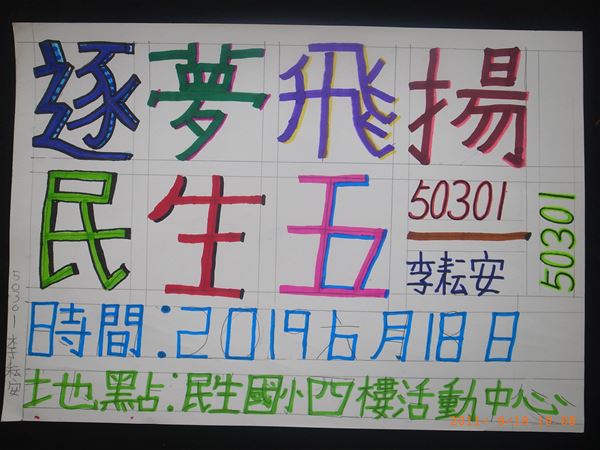 逐夢飛揚
民生五
50301
李耘安
50301
時間:2019年6月18日
地點:民生國小四樓活動中心
50301李耘安